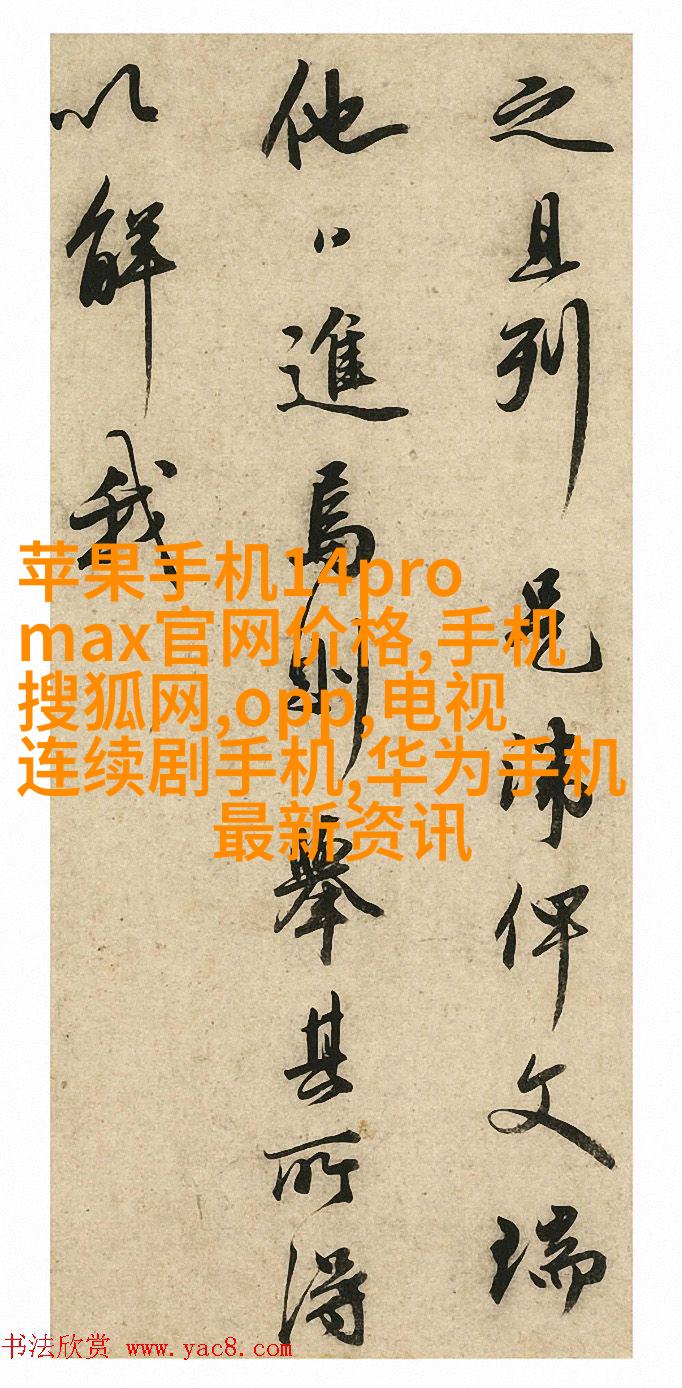 之且列是諱俾文瑞
他〃進焉則舉其所得
以解我
苹果手机14pro
max官网价格,手机
搜狐网,opp,电视
连续剧手机,华为手机
最新资讯
书法欣赏 www.yac8.com